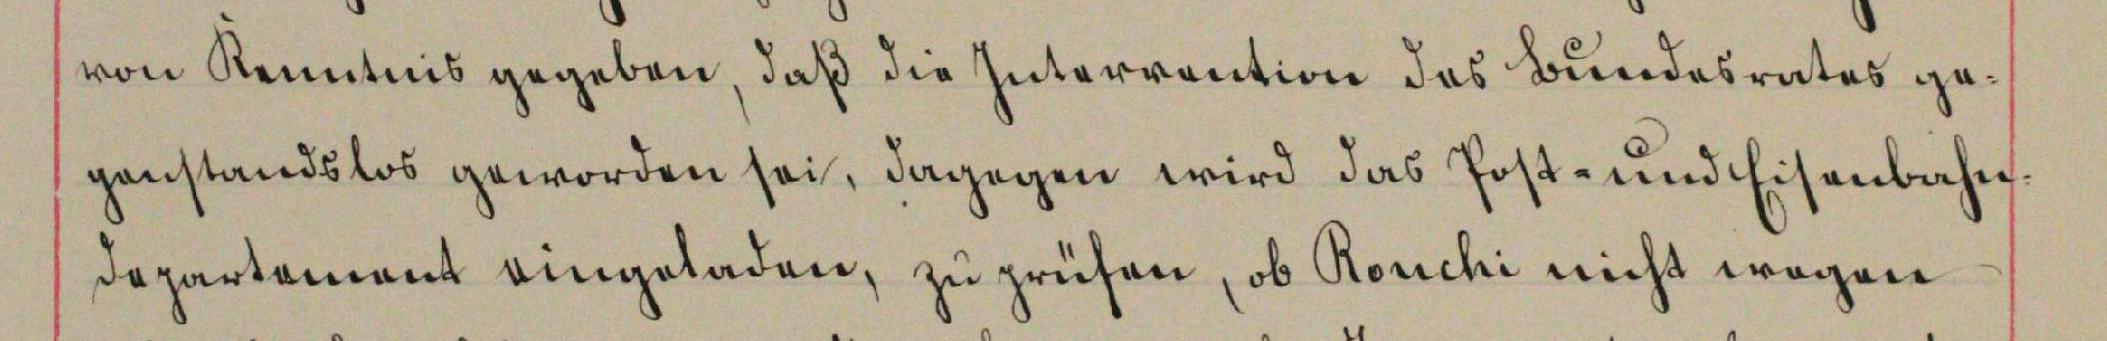 von Kenntnis gegeben, daß die Intervention des Bundesrates ge-
genstandslos geworden sei, dagegen wird das Post- und Eisenbahn-
departement eingeladen, zu prüfen, ob Ronchi nicht wegen